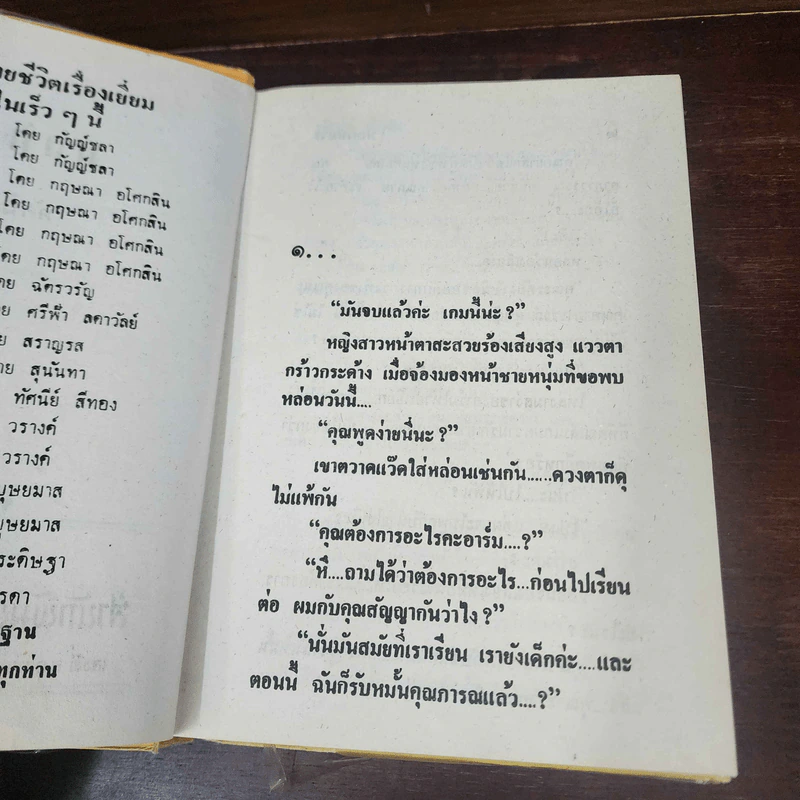 ยชีวิตเรื่องเยี่ยม
ในเร็ว ๆ นี้
โดย กัญญ์ชลา
โดย กัญญ์ชลา
โดย กฤษณา อโศกสิน
โดย กฤษณา อโศกสิน
โดย กฤษณา อโศกสิน
โดย กฤษณา อโศกสิน
ฉัตรวรัญ
ศรีฟ้า ลดาวัลย์
สราญรส
สุนันทา
ทัศนีย์ สีทอง
วรางค์
วรางค์
บุษยมาส
บุษยมาส
ระดิษฐา
รดา
ฐาน
ทุกท่าน
๑...
“มันจบแล้วค่ะ เกมนี้น่ะ?”
หญิงสาวหน้าตาสะสวยร้องเสียงสูง แววตา
กร้าวกระด้าง เมื่อจ้องมองหน้าชายหนุ่มที่ขอพบ
หล่อนวันนี้....
“คุณพูดง่ายนี่นะ?”
เขาตวาดแว๊ดใส่หล่อนเช่นกัน......ดวงตาก็ดุ
ไม่แพ้กัน
“คุณต้องการอะไรคะอาร์ม....?”
“หึ....ถามได้ว่าต้องการอะไร...ก่อนไปเรียน
ต่อ ผมกับคุณสัญญากันว่าไง?”
“นั่นมันสมัยที่เราเรียน เรายังเด็กค่ะ....และ
ตอนนี้ ฉันก็รับหมั้นคุณภารณแล้ว....?”